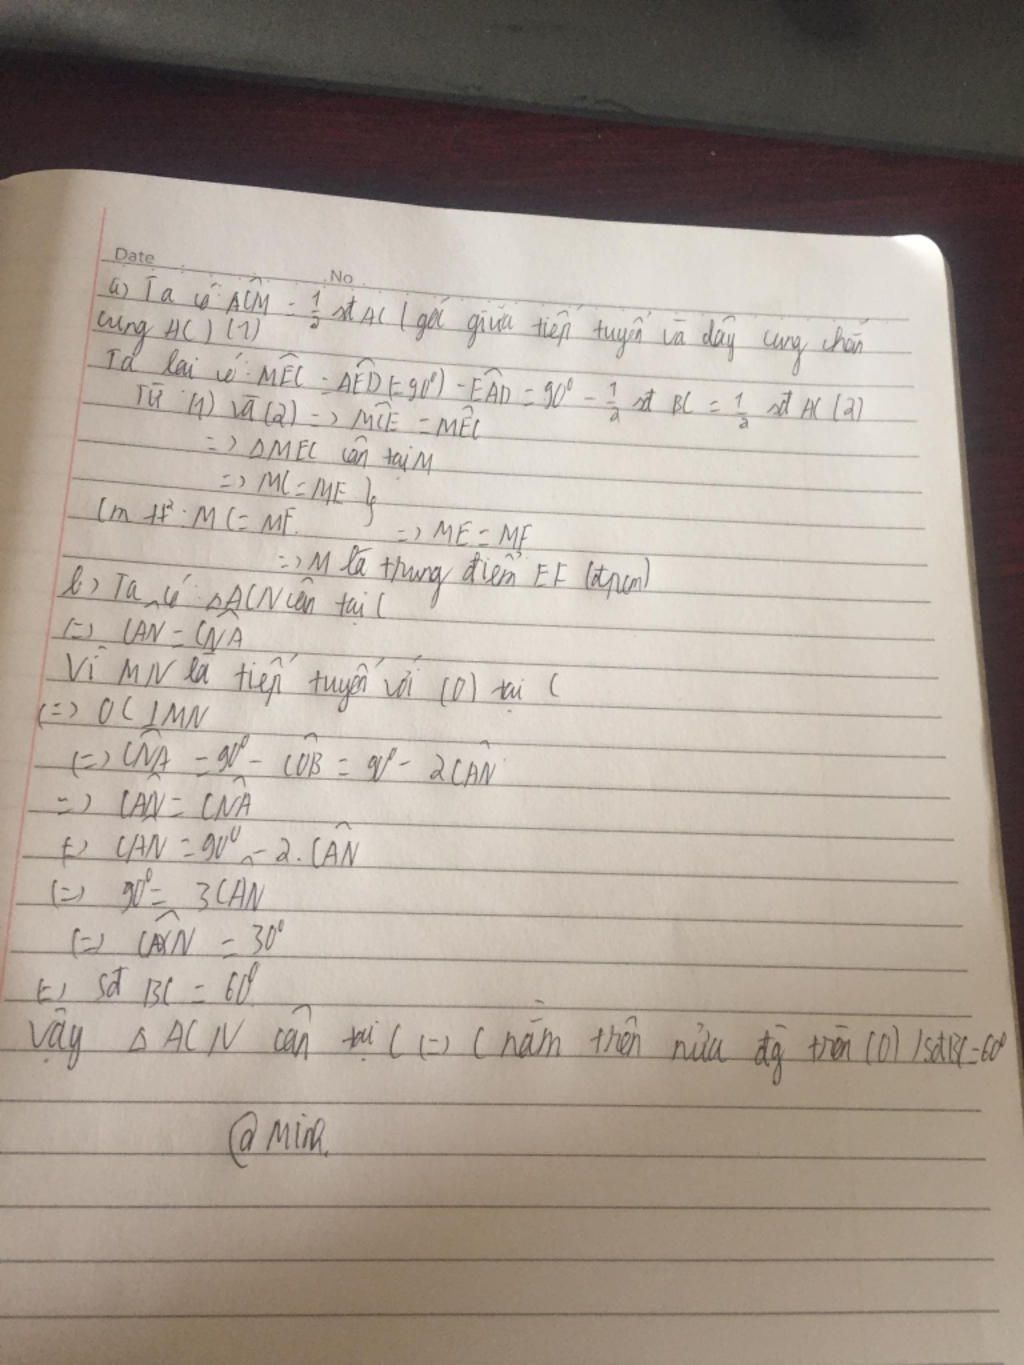 Date
No.
a) Ta có ACM̂ = 1/2 sđ AC (góc giữa tiếp tuyến và dây cung chắn
cung AC) (1)
Ta lại có: MÊC = AÊD(=90⁰) - EÂD = 90⁰ - 1/2 sđ BC = 1/2 sđ AC (2)
Từ (1) và (2) => MĈE = MÊC
=> ΔMEC cân tại M
=> MC = ME }
Cm tt²: MC = MF.
=> ME = MF
=> M là trung điểm EF (đpcm)
b) Ta có ΔACN cân tại C
(=) CÂN = CN̂A
Vì MN là tiếp tuyến với (O) tại C
(=) OC ⊥ MN
(=) CN̂A = 90⁰ - CÔB = 90⁰ - 2CÂN
=> CÂN = CN̂A
(=) CAN = 90⁰ - 2.CÂN
(=) 90⁰ = 3CÂN
(=) CÂN = 30⁰
(=) sđ BC = 60⁰
Vậy ΔACN cân tại C (=) C nằm trên nửa đg tròn (O) / sđBC = 60⁰
@Minh.